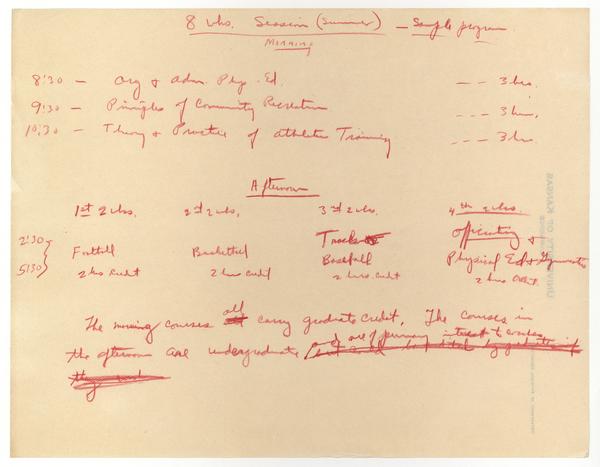 8 wks. Session (Summer) — Sample program.
Morning
8:30 — Org & Adm. Phys. Ed. — — — 3 hrs.
9:30 — Principles of Community Recreation — — — 3 hrs.
10:30 — Theory & Practice of Athletic Training — — — 3 hrs.
Afternoon
1st 2 wks. 2nd 2 wks. 3rd 2 wks. 4th 2 wks.
2:30 5:30 Football Basketball Track Baseball Officiating & Physical Ed & Gymnastics
2 hrs credit 2 hrs credit 2 hrs. credit 2 hrs credit.
The morning courses all carry graduate credit. The courses in
the afternoon are undergraduate & are of primary interest to coaches
UNIVERSITY OF KANSAS